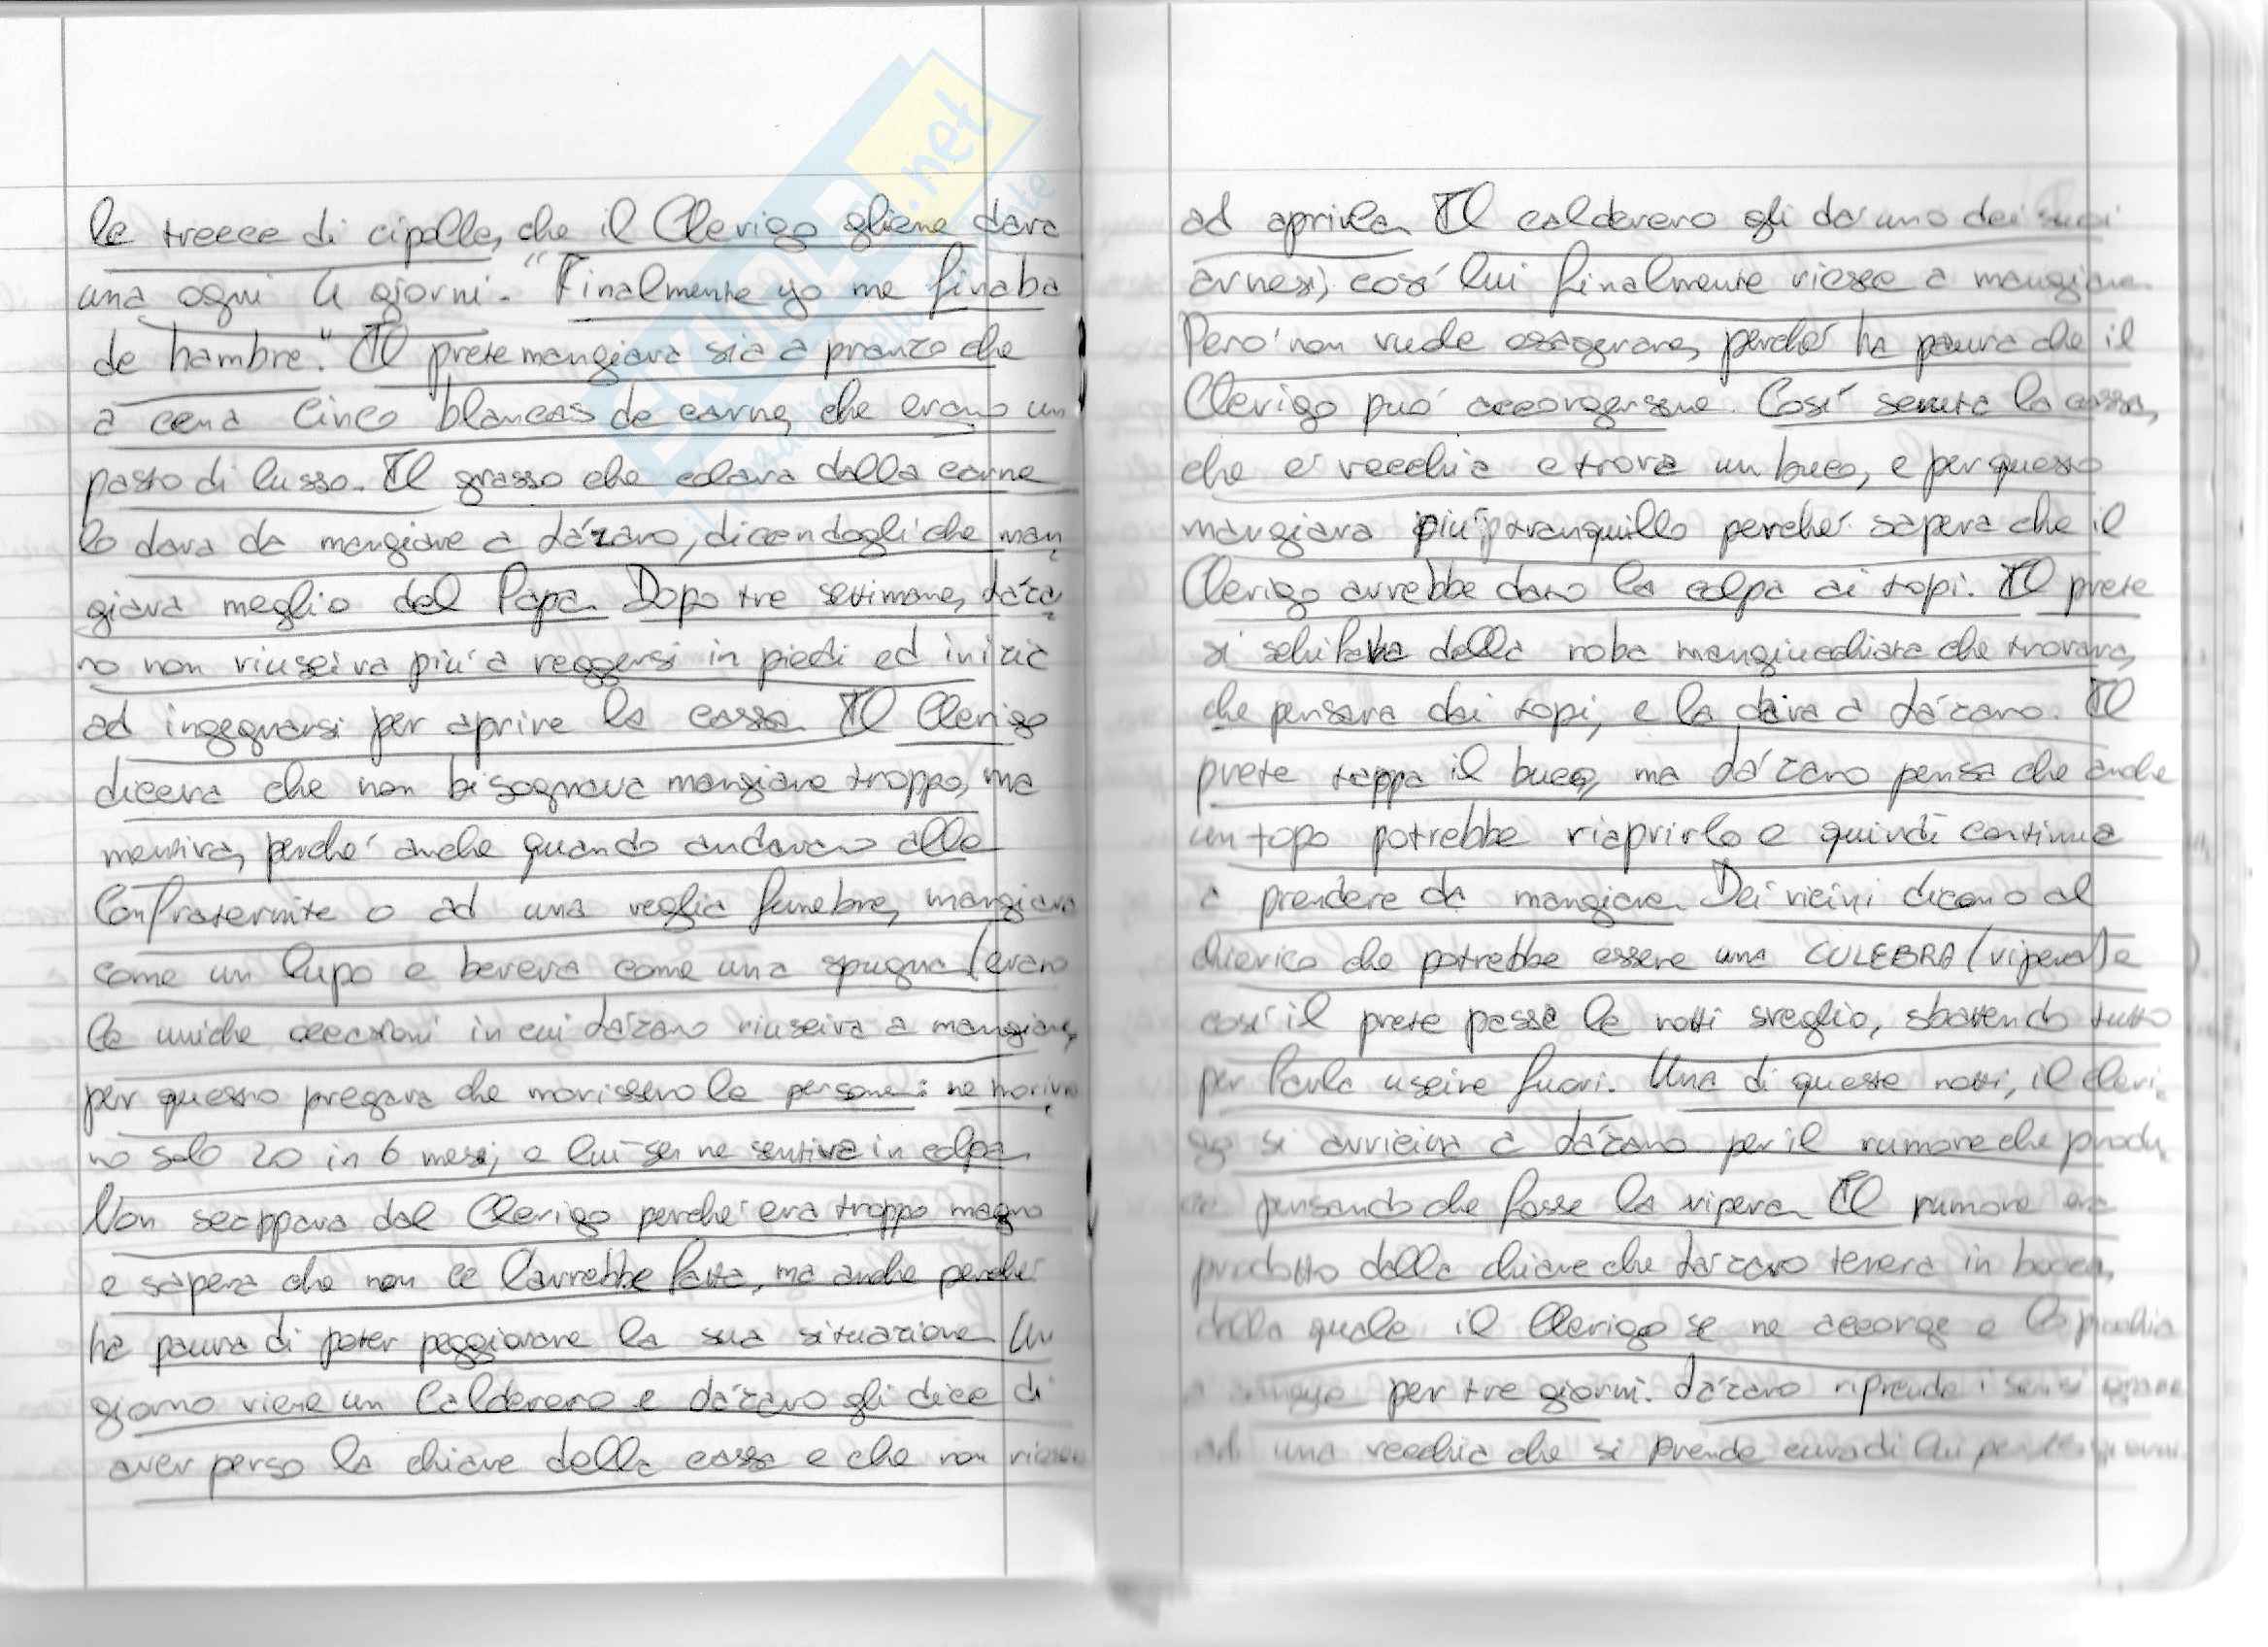 le trecce di cipolle, che il Clerigo gliene dava
una ogni 4 giorni. "Finalmente yo me finaba
de hambre." Il prete mangiava sia a pranzo che
a cena cinco blancas de carne, che erano un
pasto di lusso. Il grasso che colava dalla carne
lo dava da mangiare a Lázaro, dicendogli che man
giava meglio del Papa. Dopo tre settimane, Láza
ro non riusciva più a reggersi in piedi ed inizia
ad ingegnarsi per aprire la cassa. Il Clerigo
diceva che non bisognava mangiare troppo, ma
mentiva, perché anche quando andavano alle
Confraternite o ad una veglia funebre, mangiava
come un lupo e beveva come una spugna (erano
le uniche occasioni in cui Lázaro riusciva a mangiare,
per questo pregava che morissero le persone: ne moriro
no solo 20 in 6 mesi, e lui se ne sentiva in colpa.
Non scappava dal Clerigo perché era troppo magro
e sapeva che non ce l'avrebbe fatta, ma anche perché
ha paura di poter peggiorare la sua situazione. Un
giorno viene un Calderero e Lázaro gli dice di
aver perso la chiave della cassa e che non riesce
ad aprirla. Il calderero gli dà uno dei suoi
arnesi, così lui finalmente riesce a mangiare.
Però non vuole esagerare, perché ha paura che il
Clerigo può accorgersene. Così la cassa,
che è vecchia e trova un buco, e per questo
mangiava più tranquillo perché sapeva che il
Clerigo avrebbe dato la colpa ai topi. Il prete
si schifava della roba mangiucchiata che trovava,
che pensava dai topi, e la dava a Lázaro. Il
prete tappa il buco, ma Lázaro pensa che anche
un topo potrebbe riaprirlo e quindi continua
a prendere da mangiare. Dei vicini dicono al
chierico che potrebbe essere una CULEBRA (vipera) e
così il prete passa le notti sveglio, sbattendo tutto
per farla uscire fuori. Una di queste notti, il cleri
go si avvicina a Lázaro per il rumore che produ
ce pensando che fosse la vipera. Il rumore era
prodotto dalla chiave che Lázaro teneva in bocca,
della quale il Clerigo se ne accorge e lo picchia
per tre giorni. Lázaro riprende i sensi grazie
ad una vecchia che si prende cura di lui per